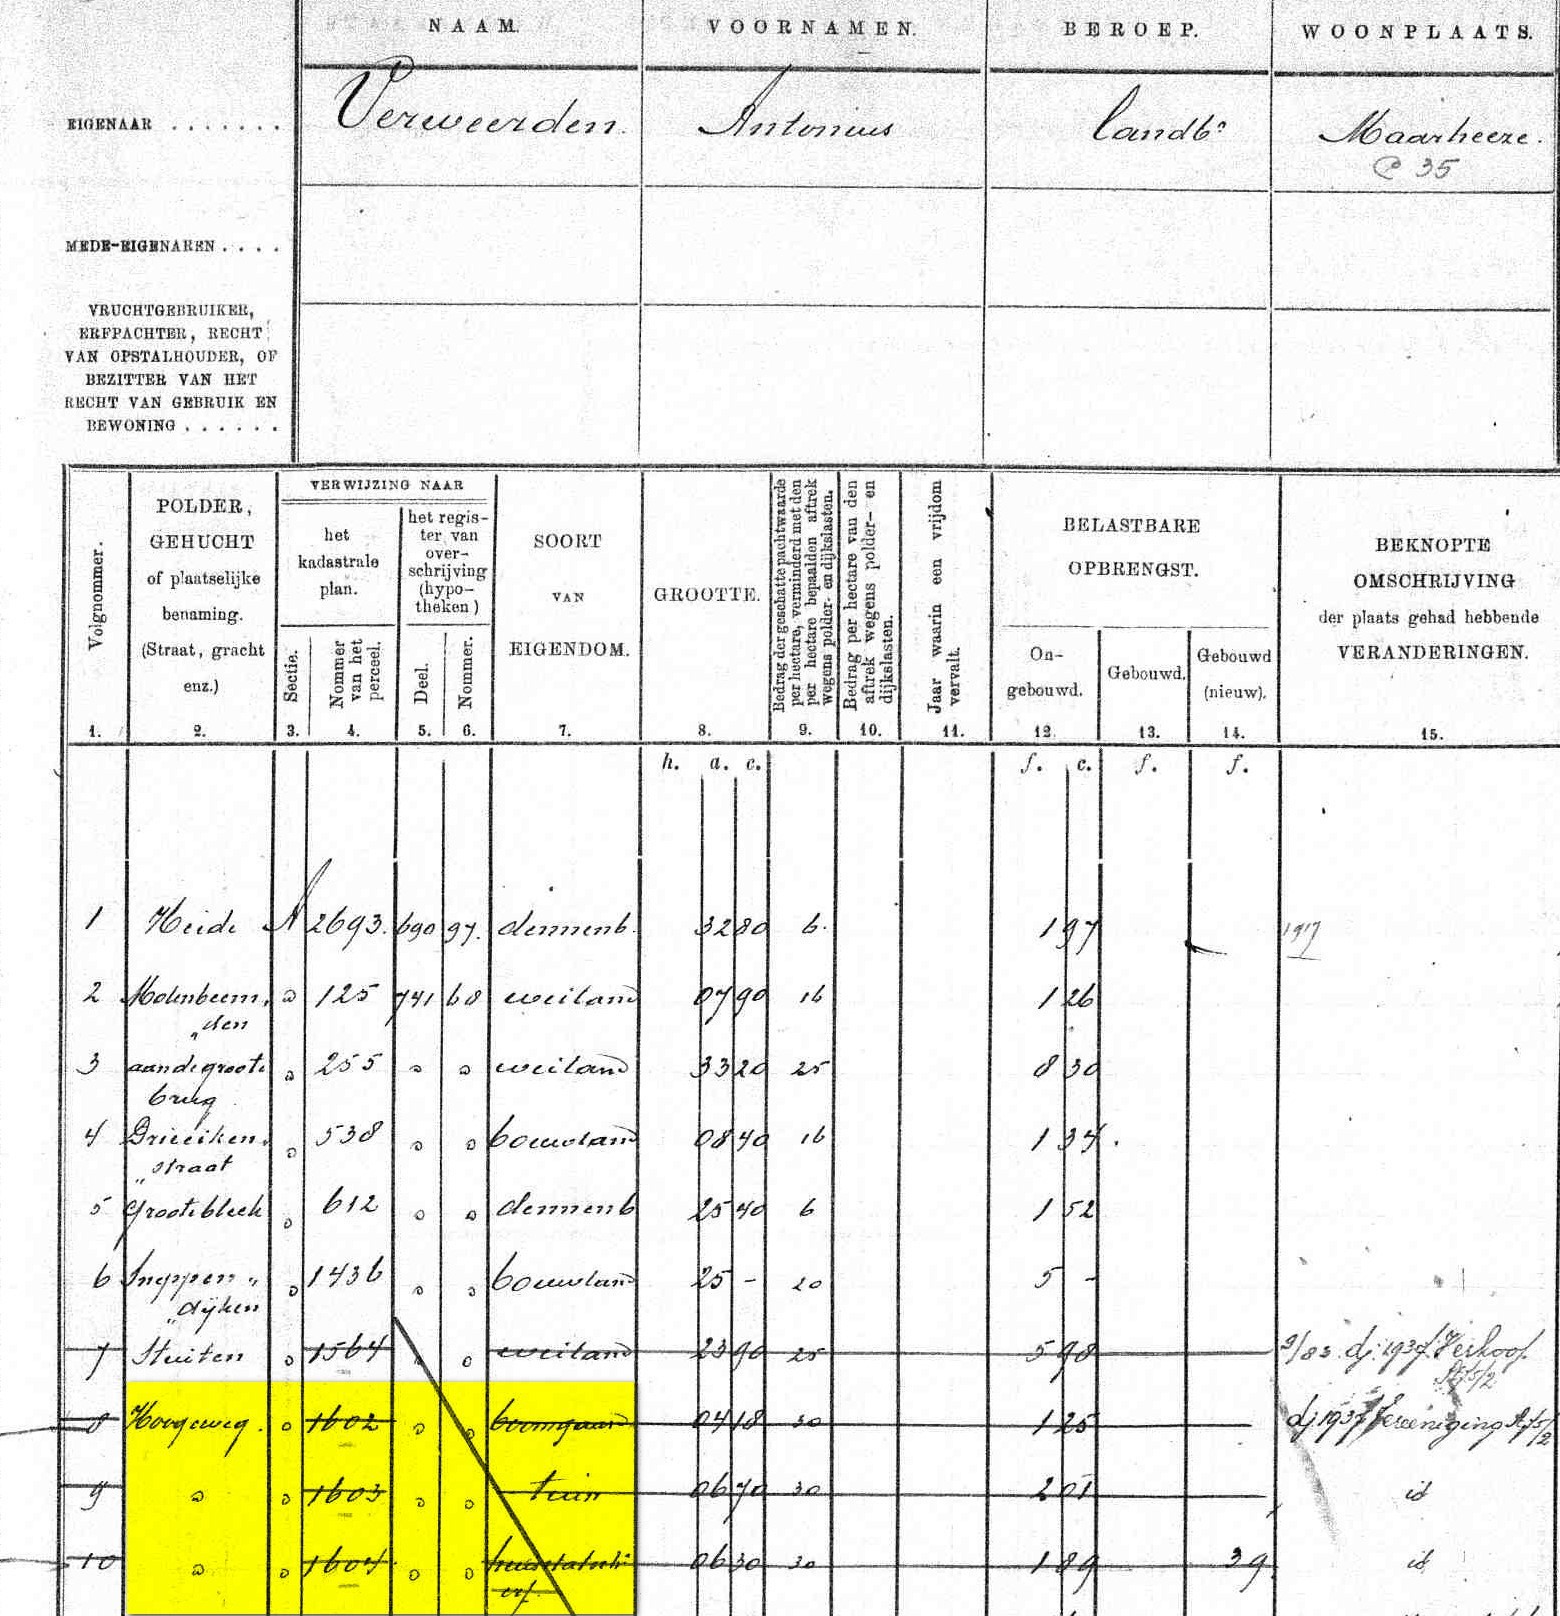 NAAM. VOORNAMEN. BEROEP. WOONPLAATS.
EIGENAAR . . . . . . . Verweerden. Antonius landbr Maarheeze.
C 35
MEDE-EIGENAREN . . . .
VRUCHTGEBRUIKER,
ERFPACHTER, RECHT
VAN OPSTALHOUDER, OF
BEZITTER VAN HET
RECHT VAN GEBRUIK EN
BEWONING . . . . . .
Volgnommer.
1.
POLDER,
GEHUCHT
of plaatselijke
benaming.
(Straat, gracht
enz.)
2.
VERWIJZING NAAR
het
kadastrale
plan.
Sectie.
3.
Nommer
van het
perceel.
4.
het regis-
ter van
over-
schrijving
(hypo-
theken)
Deel.
5.
Nommer.
6.
SOORT
VAN
EIGENDOM.
7.
GROOTTE.
8.
Bedrag der geschatte pachtwaarde
per hectare, verminderd met den
per hectare bepaalden aftrek
wegens polder- en dijkslasten.
9.
Bedrag per hectare van den
aftrek wegens polder- en
dijkslasten.
10.
Jaar waarin een vrijdom
vervalt.
11.
BELASTBARE
OPBRENGST.
On-
gebouwd.
12.
Gebouwd.
13.
Gebouwd
(nieuw).
14.
BEKNOPTE
OMSCHRIJVING
der plaats gehad hebbende
VERANDERINGEN.
15.
h. a. c. f. c. f. f.
1 Heide A 2693. 690 97. dennenb. 32 80 6. 1 97 1917
2 Molenbeem„ „ 125 741 68 weiland 07 90 16 1 26
„den
3 aan de groote „ 255 „ „ weiland 33 20 25 8 30
brug
4 Drieeiken„ „ 538 „ „ bouwland 08 40 16 1 34.
„straat
5 Grootebleek „ 612 „ „ dennenb 25 40 6 1 52
6 Sneppen„ „ 1436 „ „ bouwland 25 - 20 5 -
„dijken
7 Stuiten „ 1564 „ „ weiland 23 90 25 5 98 2/83 dj. 1937 Verkoop
8 Hoogeweg. „ 1602 „ „ boomgaard 04 18 30 1 25 dj 1937 Vereeniging
9 „ „ 1603 „ „ tuin 06 70 30 2 01 id
10 „ „ 1604 „ „ 06 30 30 1 89 39. id
erf.